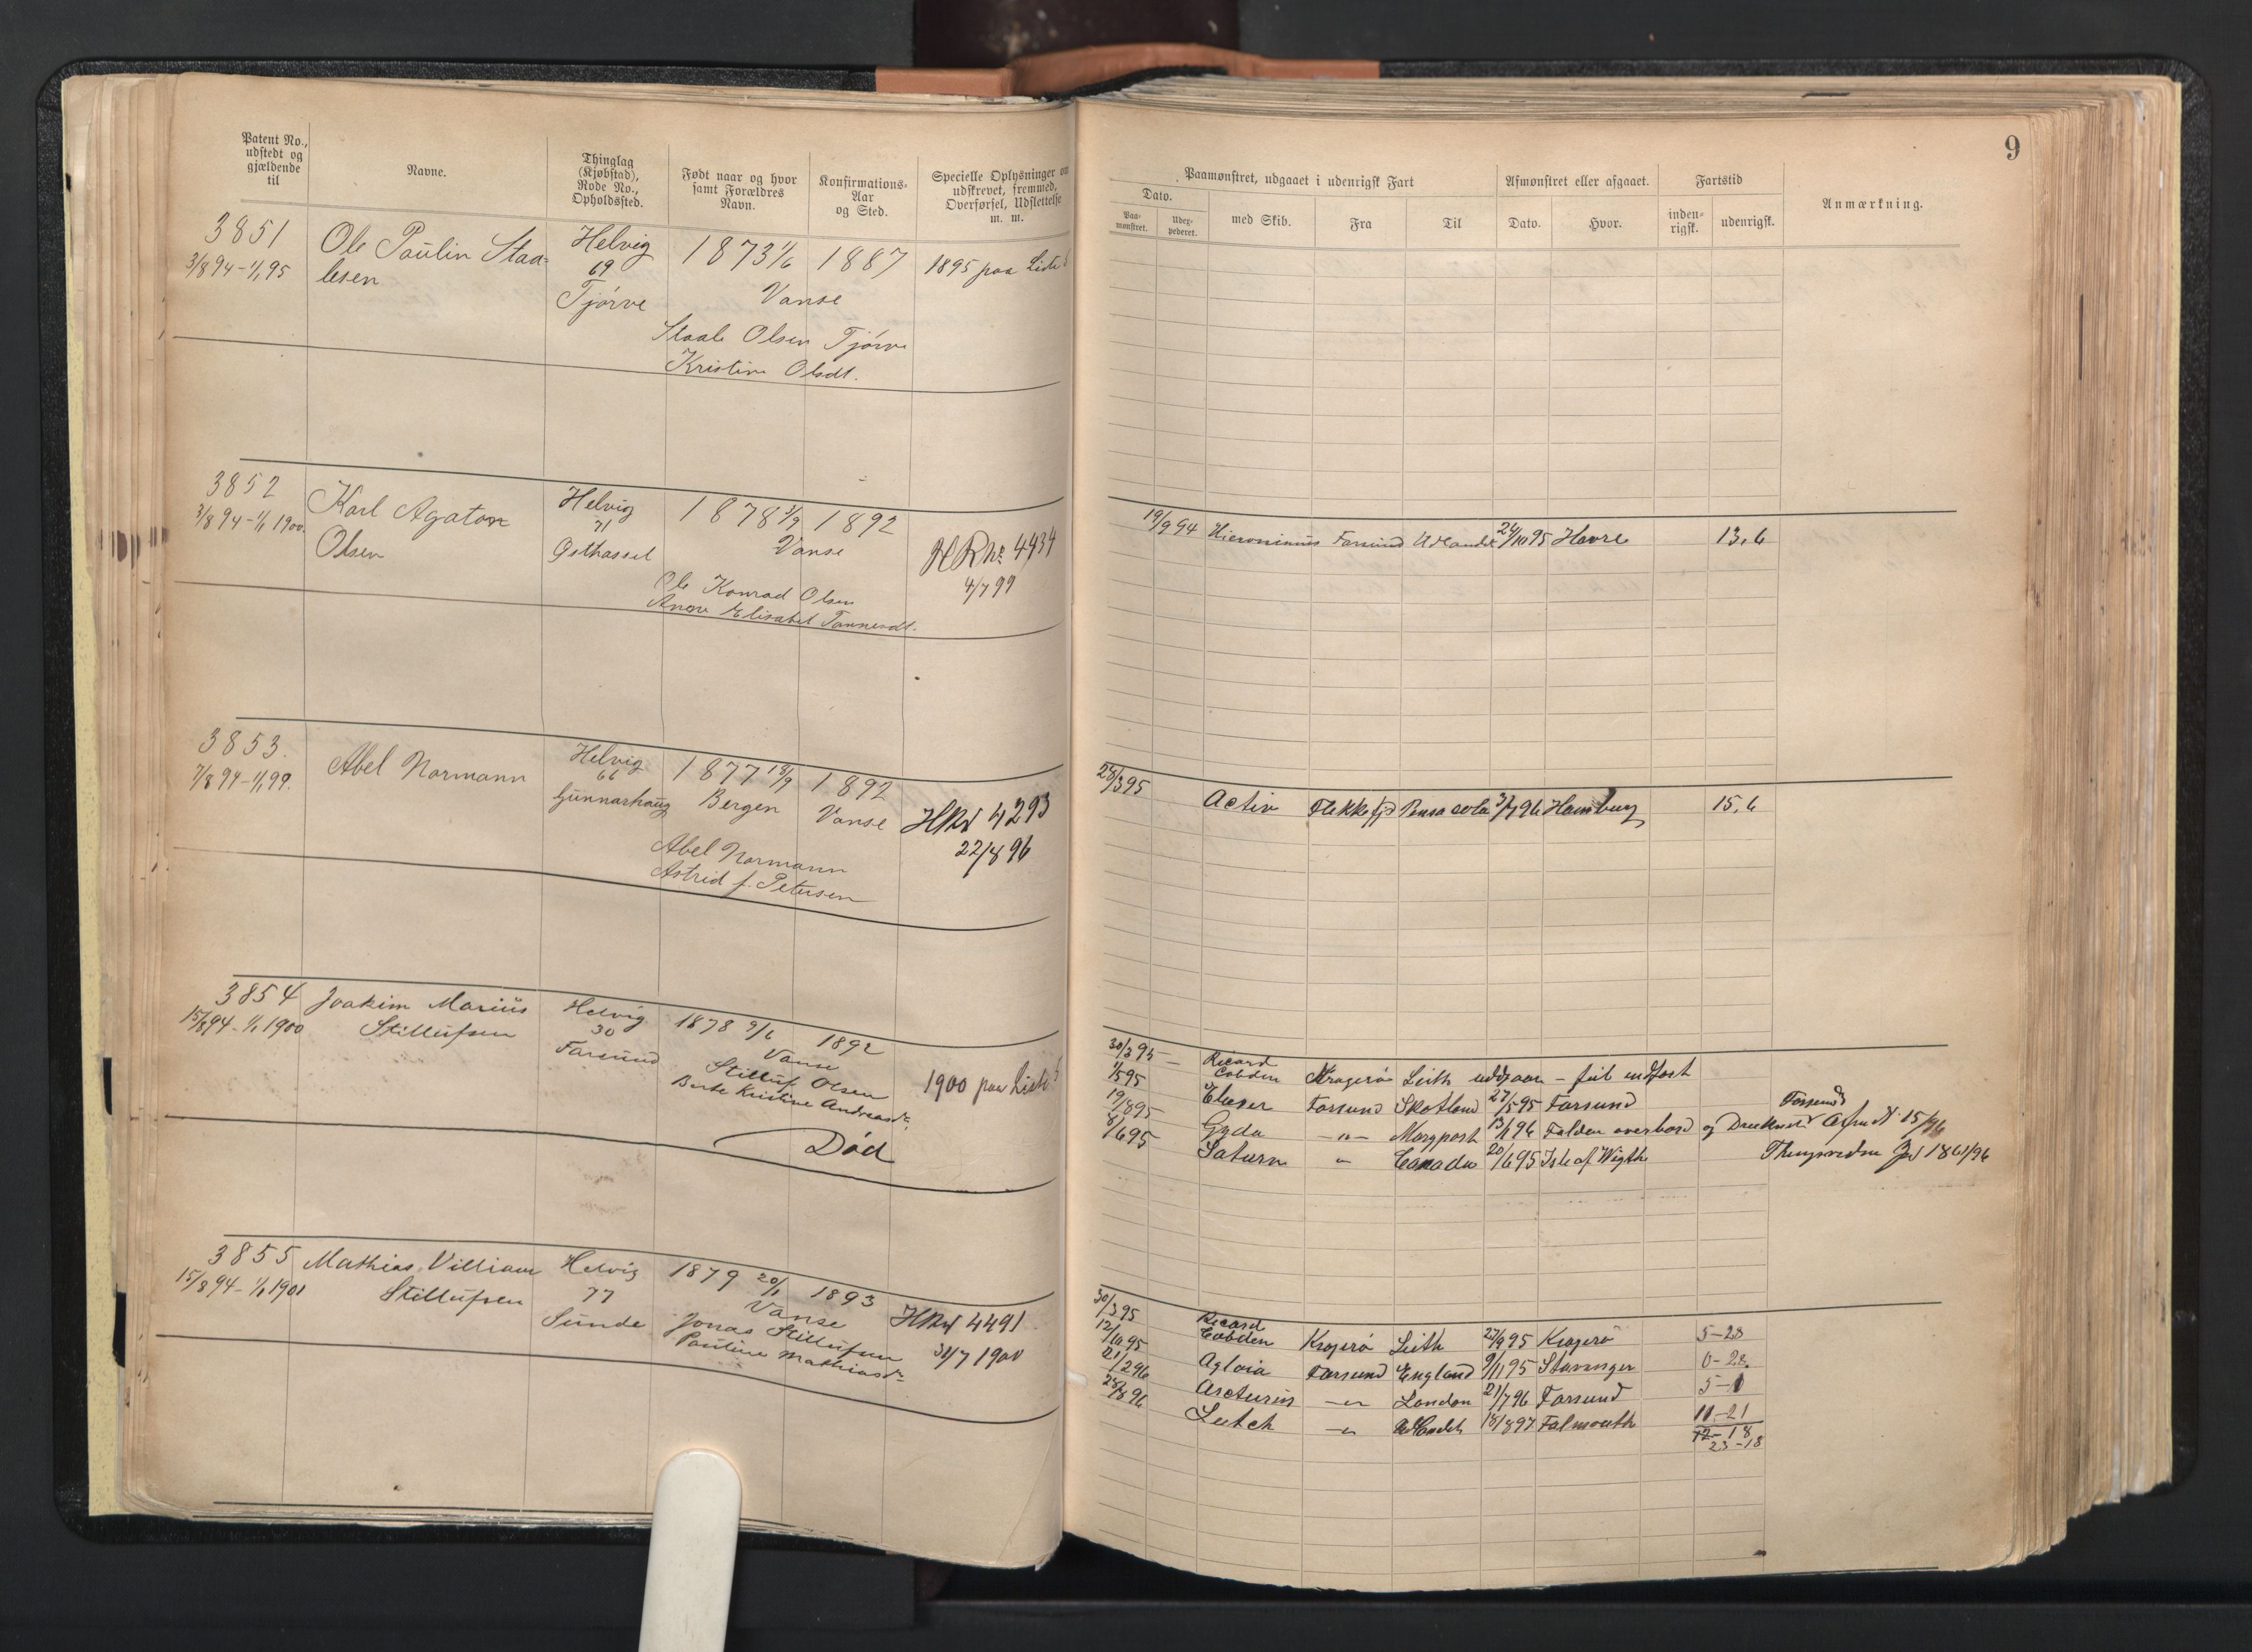 9
Patent No., udstedt og gjældende til
Navne.
Thinglag (Kjøbstad), Rode No., Opholdssted.
Født naar og hvor samt Forældres Navn.
Konfirmations-Aar og Sted.
Specielle Oplysninger om udskrevet, fremmed, Overførsel, Udslettelse m. m.
Paamønstret, udgaaet i udenrigsk Fart
Afmønstret eller afgaaet.
Fartstid
Anmærkning.
Dato.
Paa-mønstret.
Uder-pederet.
med Skib.
Fra
Til
Dato.
Hvor.
inden-rigsk.
udenrigsk.
3851
3/8 94 - 1/1 95
Ole Paulin Staa-
lesen
Helvig
69
Tjørve
1873 1/6
1887
Vanse
Staale Olsen Tjørve
Kristine Olsdt.
1895 paa Liste
3852
3/8 94 - 1/1 1900.
Karl Agaton
Olsen
Helvig
71
Østhassel
1878
1892
Vanse
Ole Konrad Olsen
Anne Elisabet Tønnesdt.
HR No 4434
4/7 99
19/9 94 Hieronimus Farsund Udlandet 24/10 95 Havre 13,6
3853.
7/8 94 - 1/1 99.
Abel Normann
Helvig
66
Gunnarshaug
1877 18/9
1892
Bergen
Vanse
Abel Normann
Astrid f. Petersen
HRN 4293
22/8 96
28/3 95 Activ Flekkefj Pensacola 3/7 96 Hamburg 15,6
3854
15/8 94 - 1/1 1900
Joakim Marius
Stillufsen
Helvig
30
Farsund
1878 9/6
1892
Vanse
Stilluf Olsen
Berte Kristine Andreasdr.
1900 paa Liste
Død
30/3 95 - Ricard
Cobden Kragerø Leith
1/5 95 Elieser Farsund Skotland 27/5 95 Farsund
19/8 95 Gyda -"- Marypost 13/1 96 Falden overbord og Druknet
8/6 95 Saturn " Canada 20/6 95 Isle of Wigth
Farsunds
15/96
186/96
3855
15/8 94 - 1/1 1901
Mathias Villiam
Stillufsen
Helvig
77
Sunde
1879 20/1
1893
Vanse
Jonas Stillufsen
Pauline Mathiasdr.
HRN 4491
31/7 1900
30/3 95 Ricard
Cobden Kragerø Leith 27/9 95 Kragerø 5-28
12/10 95 Aglaia Farsund England 9/11 95 Stavanger 0-28.
21/2 96 Arcturus -"- London 21/7 96 Farsund 5-1
28/8 96 Leitch -"- Udlandet 18/8 97 Falmouth 11-21
12-18
23-18